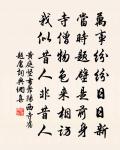 萬事紛紛日日新
當時題壁是前身
寺僧物色來相訪
我似昔人非昔人
黃庭堅書舞陽西寺舊
題處詞典網集